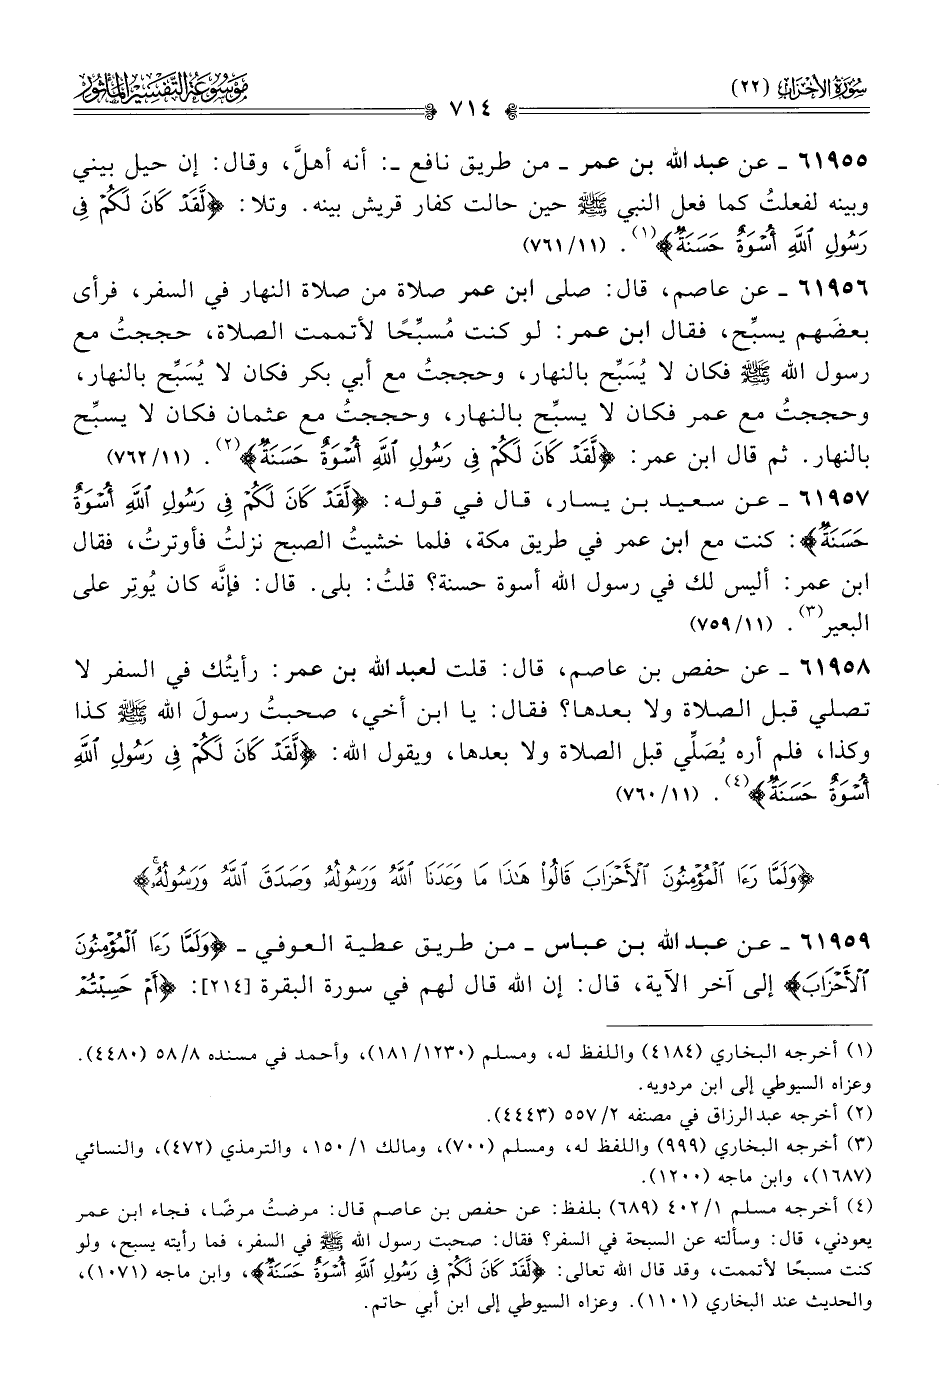 سُورَةُ الأَحْزَابِ (٢٢)
مَوْسُوعَةُ التَّفْسِيرِ المَأْثُور
٧١٤
٦١٩٥٥ ـ عن عبد الله بن عمر ـ من طريق نافع ـ: أنه أهلَّ، وقال: إن حيل بيني
وبينه لفعلتُ كما فعل النبي ﷺ حين حالت كفار قريش بينه. وتلا: ﴿لَّقَدْ كَانَ لَكُمْ فِى
رَسُولِ ٱللَّهِ أُسْوَةٌ حَسَنَةٌ﴾(١). (١١/ ٧٦١)
٦١٩٥٦ ـ عن عاصم، قال: صلى ابن عمر صلاة من صلاة النهار في السفر، فرأى
بعضَهم يسبِّح، فقال ابن عمر: لو كنت مُسبِّحًا لأتممت الصلاة، حججتُ مع
رسول الله ﷺ فكان لا يُسَبِّح بالنهار، وحججتُ مع أبي بكر فكان لا يُسَبِّح بالنهار،
وحججتُ مع عمر فكان لا يسبِّح بالنهار، وحججتُ مع عثمان فكان لا يسبِّح
بالنهار. ثم قال ابن عمر: ﴿لَّقَدْ كَانَ لَكُمْ فِى رَسُولِ ٱللَّهِ أُسْوَةٌ حَسَنَةٌ﴾(٢). (١١/ ٧٦٢)
٦١٩٥٧ ـ عن سعيد بن يسار، قال في قوله: ﴿لَّقَدْ كَانَ لَكُمْ فِى رَسُولِ ٱللَّهِ أُسْوَةٌ
حَسَنَةٌ﴾: كنت مع ابن عمر في طريق مكة، فلما خشيتُ الصبح نزلتُ فأوترتُ، فقال
ابن عمر: أليس لك في رسول الله أسوة حسنة؟ قلتُ: بلى. قال: فإنَّه كان يُوتِر على
البعير(٣). (١١/ ٧٥٩)
٦١٩٥٨ ـ عن حفص بن عاصم، قال: قلت لعبد الله بن عمر: رأيتُك في السفر لا
تصلي قبل الصلاة ولا بعدها؟ فقال: يا ابن أخي، صحبتُ رسولَ الله ﷺ كذا
وكذا، فلم أره يُصَلِّي قبل الصلاة ولا بعدها، ويقول الله: ﴿لَّقَدْ كَانَ لَكُمْ فِى رَسُولِ ٱللَّهِ
أُسْوَةٌ حَسَنَةٌ﴾(٤). (١١/ ٧٦٠)
﴿وَلَمَّا رَءَا ٱلْمُؤْمِنُونَ ٱلْأَحْزَابَ قَالُوا۟ هَٰذَا مَا وَعَدَنَا ٱللَّهُ وَرَسُولُهُۥ وَصَدَقَ ٱللَّهُ وَرَسُولُهُۥۚ﴾
٦١٩٥٩ ـ عن عبد الله بن عباس ـ من طريق عطية العوفي ـ ﴿وَلَمَّا رَءَا ٱلْمُؤْمِنُونَ
ٱلْأَحْزَابَ﴾ إلى آخر الآية، قال: إن الله قال لهم في سورة البقرة [٢١٤]: ﴿أَمْ حَسِبْتُمْ
(١) أخرجه البخاري (٤١٨٤) واللفظ له، ومسلم (١٢٣٠/ ١٨١)، وأحمد في مسنده ٨/ ٥٨ (٤٤٨٠).
وعزاه السيوطي إلى ابن مردويه.
(٢) أخرجه عبدالرزاق في مصنفه ٢/ ٥٥٧ (٤٤٤٣).
(٣) أخرجه البخاري (٩٩٩) واللفظ له، ومسلم (٧٠٠)، ومالك ١/ ١٥٠، والترمذي (٤٧٢)، والنسائي
(١٦٨٧)، وابن ماجه (١٢٠٠).
(٤) أخرجه مسلم ١/ ٤٠٢ (٦٨٩) بلفظ: عن حفص بن عاصم قال: مرضتُ مرضًا، فجاء ابن عمر
يعودني، قال: وسألته عن السبحة في السفر؟ فقال: صحبت رسول الله ﷺ في السفر، فما رأيته يسبح، ولو
كنت مسبحًا لأتممت، وقد قال الله تعالى: ﴿لَّقَدْ كَانَ لَكُمْ فِى رَسُولِ ٱللَّهِ أُسْوَةٌ حَسَنَةٌ﴾، وابن ماجه (١٠٧١)،
والحديث عند البخاري (١١٠١). وعزاه السيوطي إلى ابن أبي حاتم.